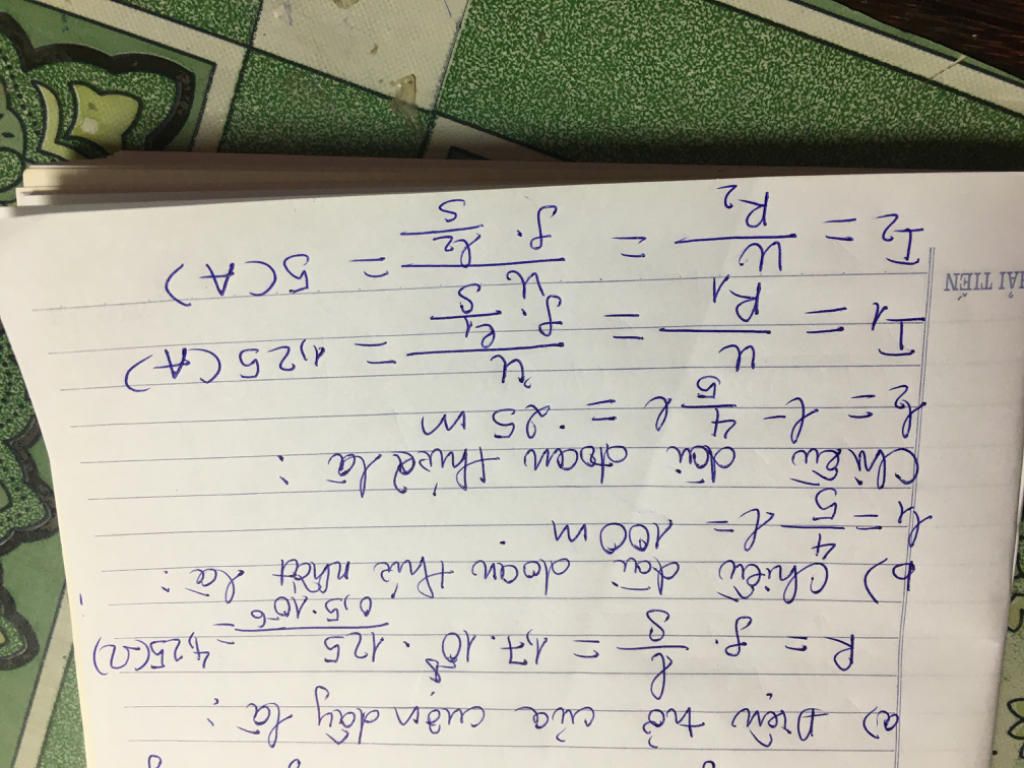 a) Điện trở của cuộn dây là:
R = ρ. l/S = 1,7.10⁻⁸. 125/0,5.10⁻⁶ = 4,25(Ω)
b) Chiều dài đoạn thứ nhất là:
l1 = 4/5 l = 100m
Chiều dài đoạn thứ 2 là:
l2 = l - 4/5 l = 25 m
I1 = U/R1 = U/ρ.l1/S = 1,25(A)
I2 = U/R2 = U/ρ.l2/S = 5(A)
HẢI TIẾN